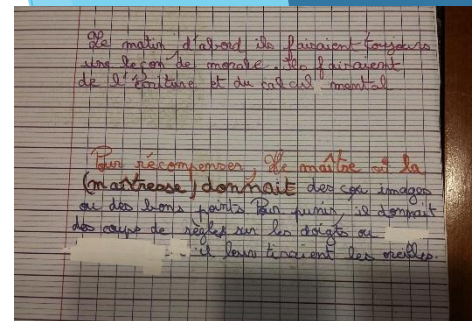 Le matin d'abord ils faisaient toujours
une leçon de morale. Ils faisaient
de l'écriture et du calcul mental
Pour récompenser, le maître et la
(maîtresse) donnait des images
ou des bons points Pour punir, il donnait
des coups de règles sur les doigts ou
il leurs tiraient les oreilles.